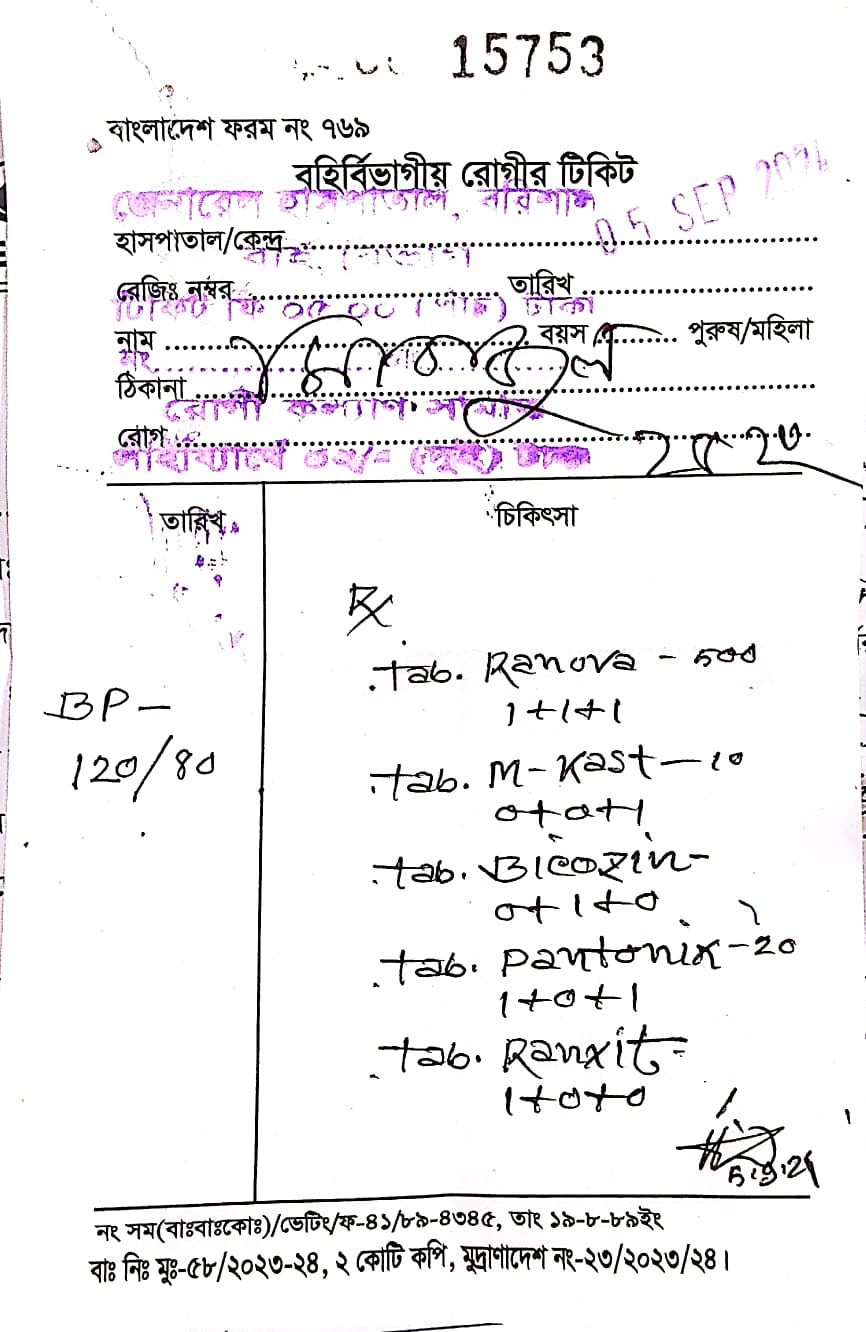 15753
বাংলাদেশ ফরম নং ৭৬৯
বহির্বিভাগীয় রোগীর টিকিট
জেনারেল হাসপাতাল, বরিশাল
05 SEP
হাসপাতাল/কেন্দ্র
রেজিঃ নম্বর তারিখ
টিকিট ফি ০৫.০০ (পাঁচ) টাকা
নাম বয়স পুরুষ/মহিলা
ঠিকানা
রোগী কল্যাণ
রোগ
তারিখ চিকিৎসা
Rx
BP-
120/80
tab. Ranova - 500
1+1+1
tab. M-Kast-10
0+0+1
tab. Bicozin-
0+1+0
tab. Pantonix-20
1+0+1
tab. Ranxit-
1+0+0
নং সম(বাঃবাঃকোঃ)/ভেটিং/ফ-৪১/৮৯-৪৩৪৫, তাং ১৯-৮-৮৯ইং
বাঃ নিঃ মুঃ-৫৮/২০২৩-২৪, ২ কোটি কপি, মুদ্রণাদেশ নং-২৩/২০২৩/২৪।